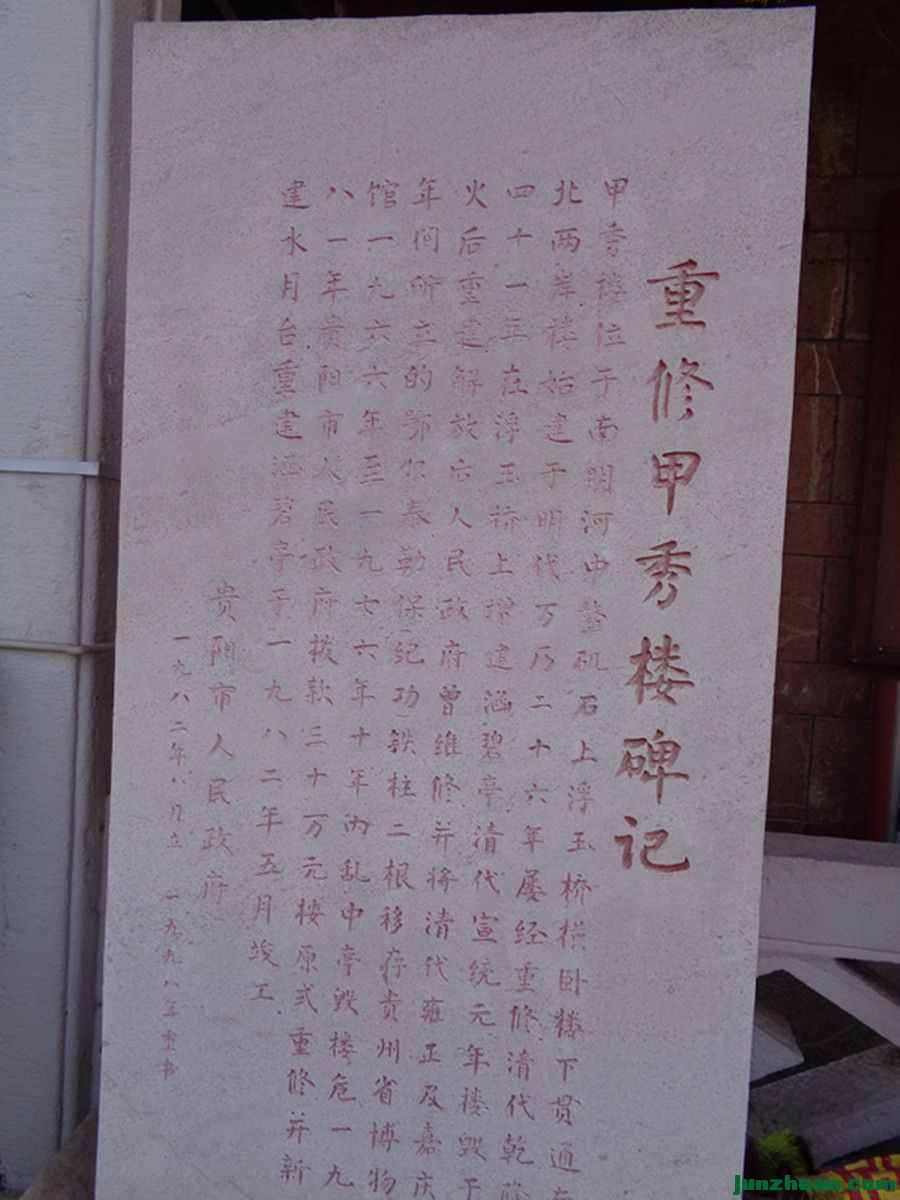 重修甲秀楼碑记
甲秀楼位于南明河中鳌矶石上浮玉桥横卧楼下贯通
北两岸楼始建于明代万历二十六年屡经重修清代乾隆
四十一年在浮玉桥上增建涵碧亭清代宣统元年楼毁于
火后重建解放后人民政府曾维修并将清代雍正及嘉庆
年间所立的鄂尔泰勒保纪功铁柱二根移存贵州省博物
馆一九六六年至一九七六年十年内乱中亭毁楼危一九
八一年贵阳市人民政府拨款三十万元按原式重修并新
建水月台重建涵碧亭于一九八二年五月竣工
贵阳市人民政府
一九八二年八月立 一九九八年重书
junzhuan.com